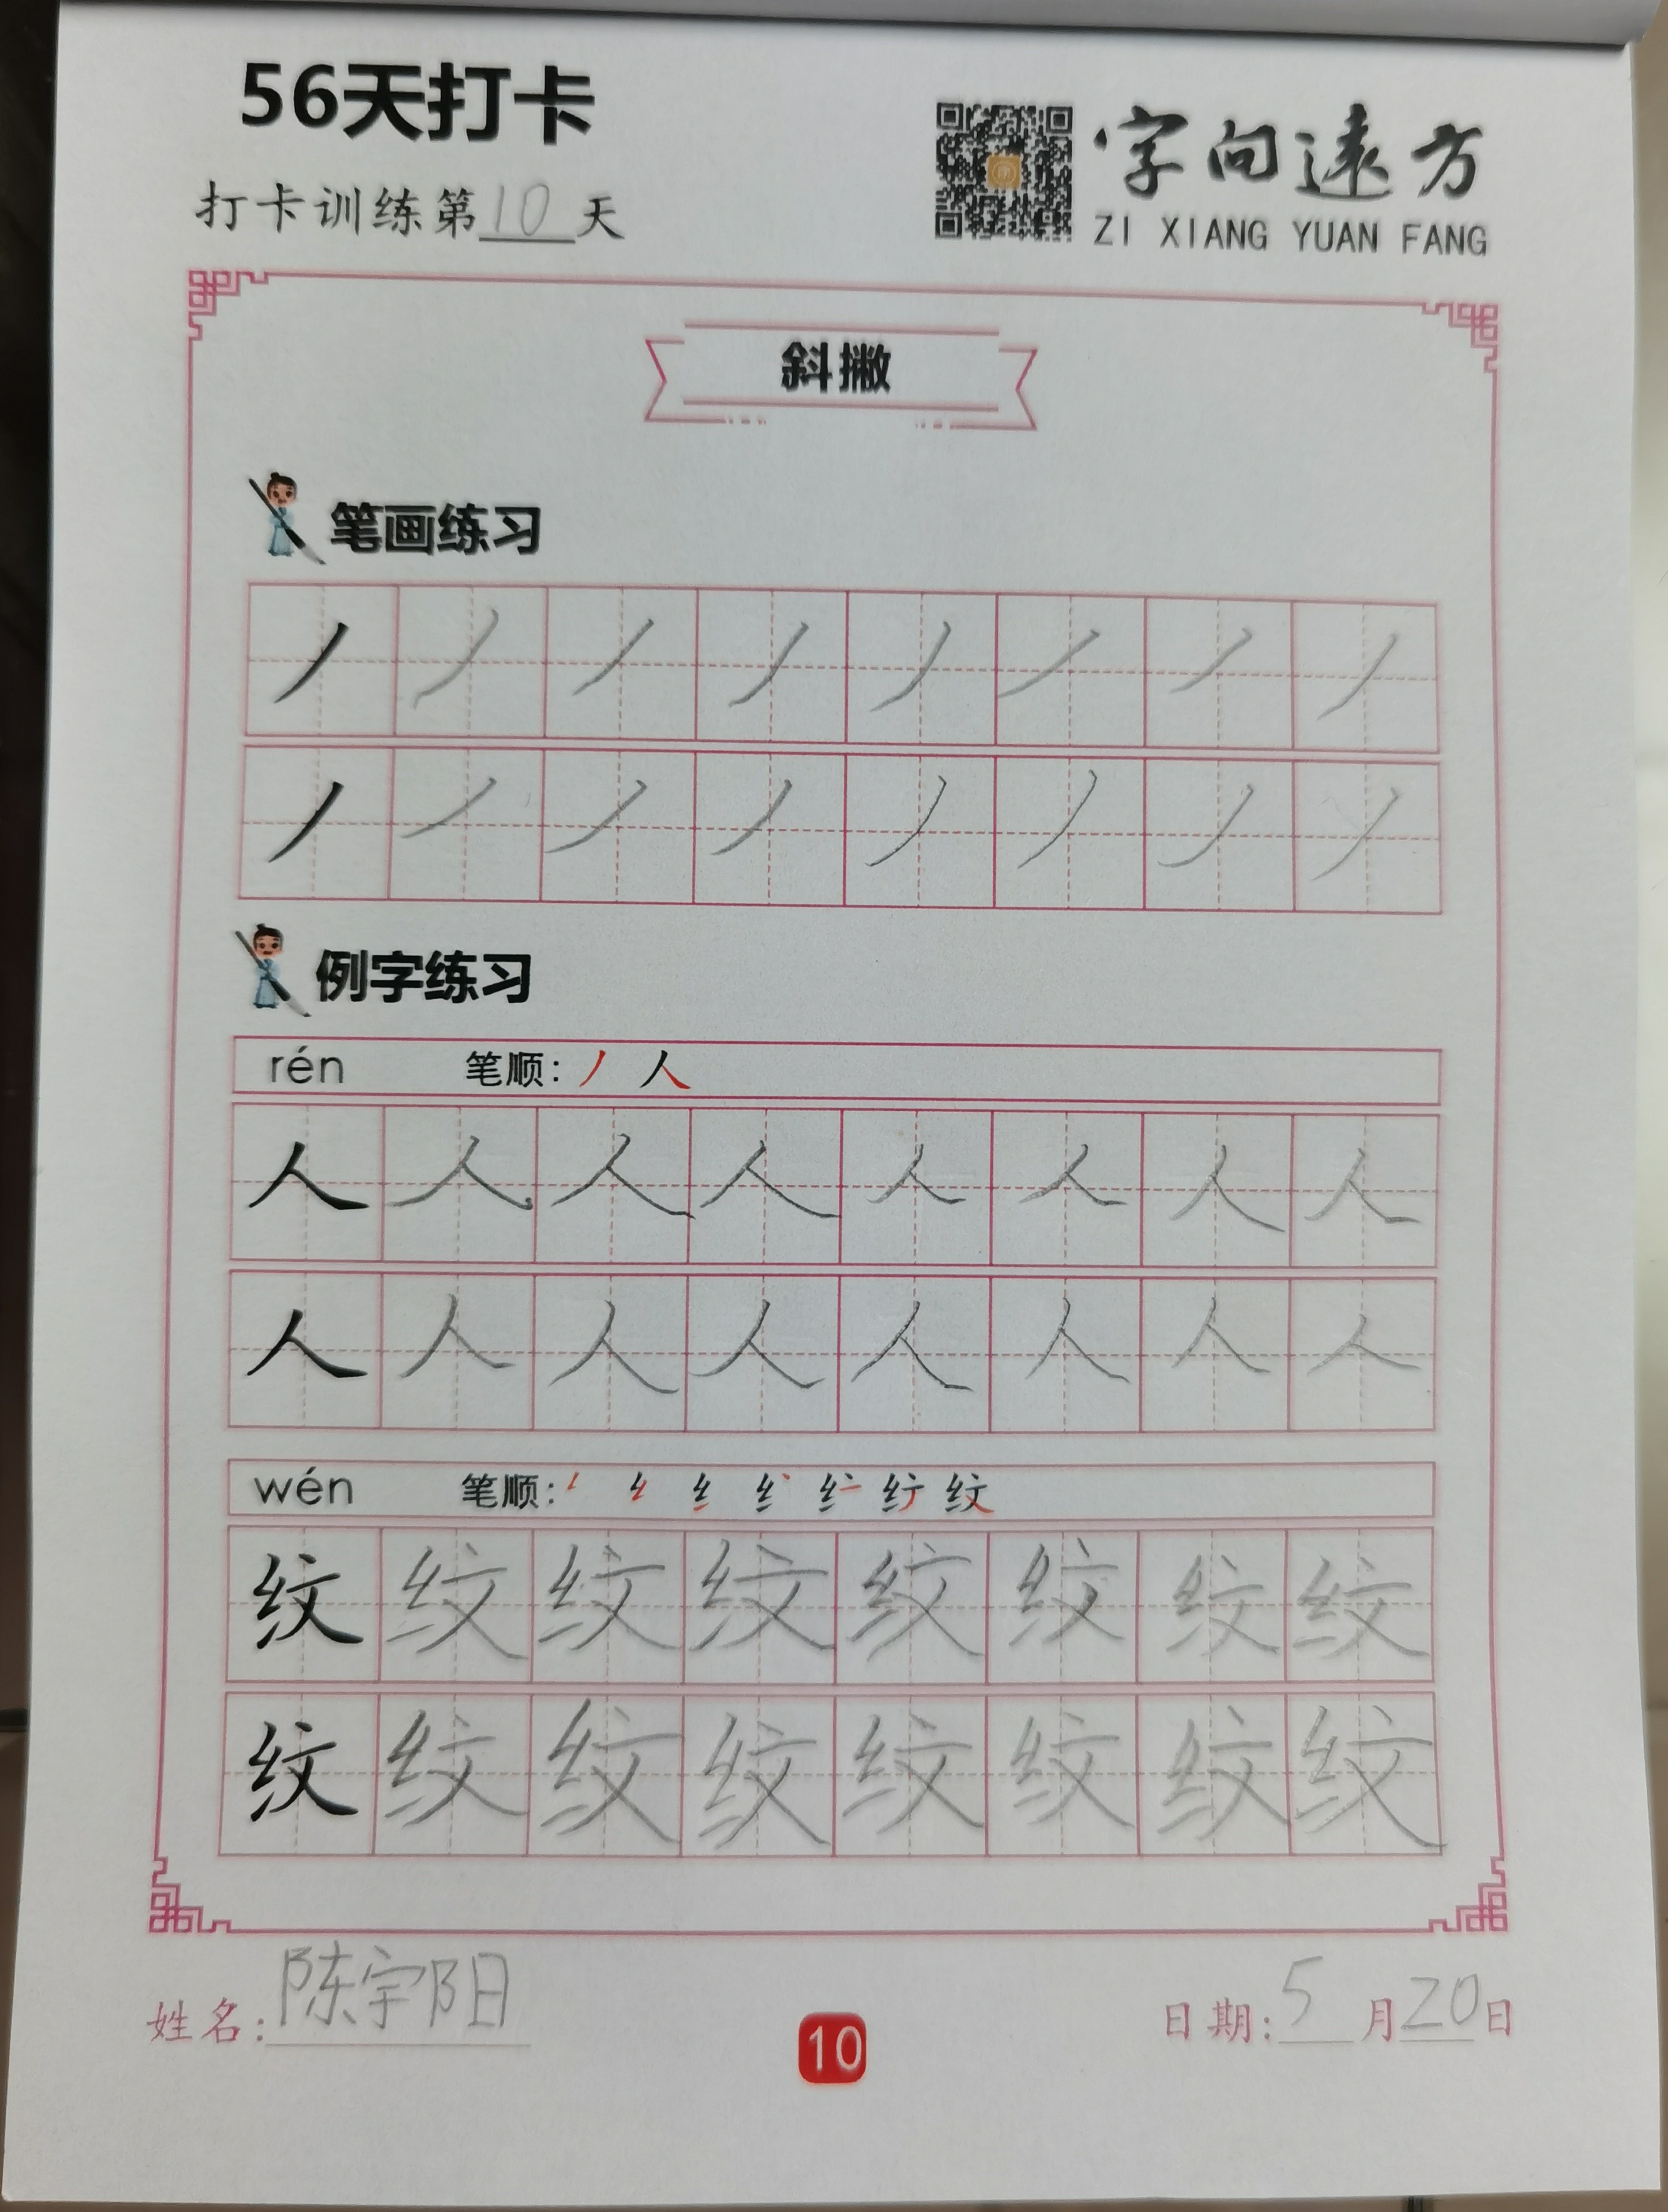 56天打卡
打卡训练第10天
字向遠方
ZI XIANG YUAN FANG
斜撇
笔画练习
丿 丿 丿 丿 丿 丿 丿 丿
丿 丿 丿 丿 丿 丿 丿 丿
例字练习
rén 笔顺: 丿 人
人 人 人 人 人 人 人 人
人 人 人 人 人 人 人 人
wén 笔顺: 纹
纹 纹 纹 纹 纹 纹 纹 纹
纹 纹 纹 纹 纹 纹 纹 纹
姓名: 陈宇阳
10
日期: 5月20日